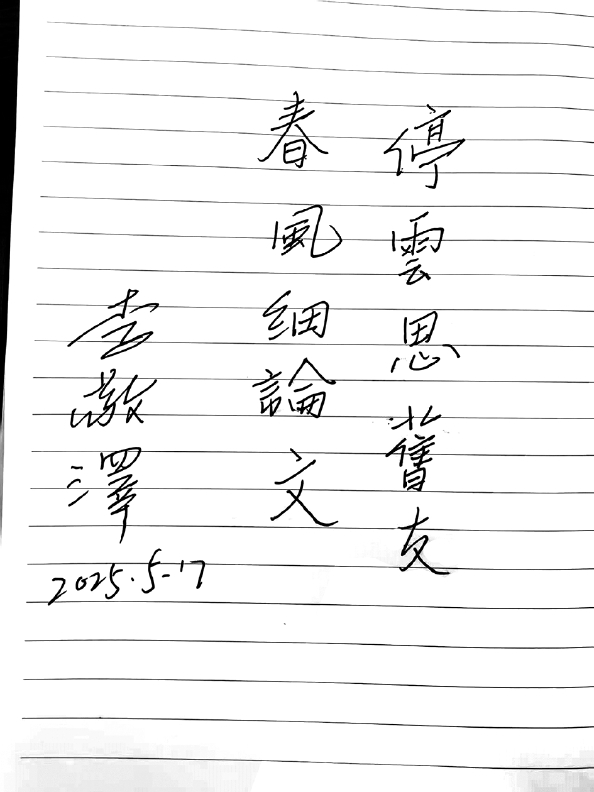 停雲思舊友
春風細論文
李敬澤
2025.5.17